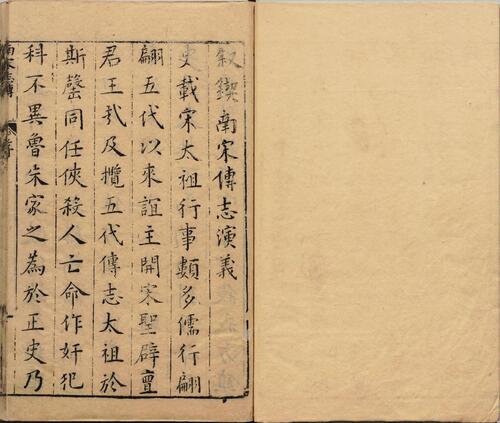 叙鍥南宋傳志演義
史載宋太祖行事類多儒行翩
翩五代以來誼主開宋聖辟亶
君王㢤及攬五代傳志太祖於
斯罄同任俠殺人亡命作奸犯
科不異魯朱家之為於正史乃
南宋志傳
序
一